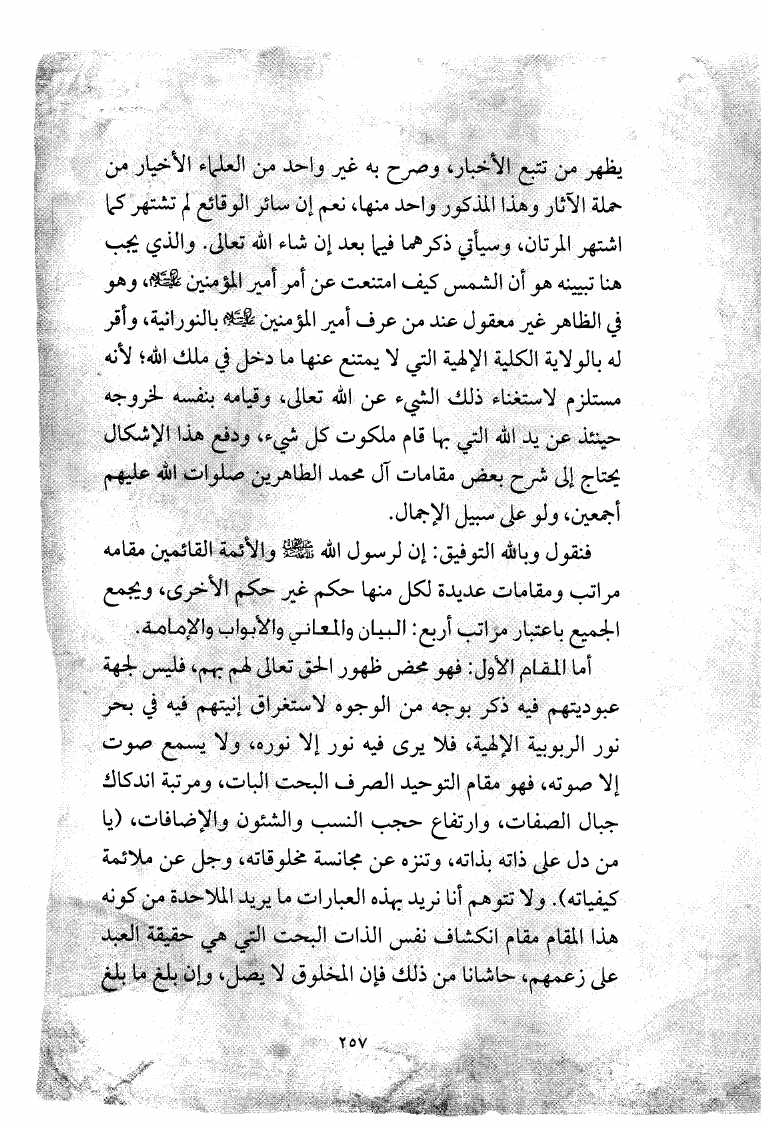 يظهر من تتبع الأخبار، وصرح به غير واحد من العلماء الأخيار من
حملة الآثار وهذا المذكور واحد منها، نعم إن سائر الوقائع لم تشتهر كما
اشتهر المرتان، وسيأتي ذكرهما فيما بعد إن شاء الله تعالى. والذي يجب
هنا تبيينه هو أن الشمس كيف امتنعت عن أمر أمير المؤمنين عليه السلام، وهو
في الظاهر غير معقول عند من عرف أمير المؤمنين عليه السلام بالنورانية، وأقر
له بالولاية الكلية الإلهية التي لا يمتنع عنها ما دخل في ملك الله؛ لأنه
مستلزم لاستغناء ذلك الشيء عن الله تعالى، وقيامه بنفسه لخروجه
حينئذ عن يد الله التي بها قام ملكوت كل شيء، ودفع هذا الإشكال
يحتاج إلى شرح بعض مقامات آل محمد الطاهرين صلوات الله عليهم
أجمعين، ولو على سبيل الإجمال.
فنقول وبالله التوفيق: إن لرسول الله ﷺ والأئمة القائمين مقامه
مراتب ومقامات عديدة لكل منها حكم غير حكم الأخرى، ويجمع
الجميع باعتبار مراتب أربع: البيان والمعاني والأبواب والإمامة.
أما المقام الأول: فهو محض ظهور الحق تعالى لهم بهم، فليس لجهة
عبوديتهم فيه ذكر بوجه من الوجوه لاستغراق إنيتهم فيه في بحر
نور الربوبية الإلهية، فلا يرى فيه نور إلا نوره، ولا يسمع صوت
إلا صوته، فهو مقام التوحيد الصرف البحت البات، ومرتبة اندكاك
جبال الصفات، وارتفاع حجب النسب والشئون والإضافات، (يا
من دل على ذاته بذاته، وتنزه عن مجانسة مخلوقاته، وجل عن ملائمة
كيفياته). ولا تتوهم أنا نريد بهذه العبارات ما يريد الملاحدة من كونه
هذا المقام مقام انكشاف نفس الذات البحت التي هي حقيقة العبد
على زعمهم، حاشانا من ذلك فإن المخلوق لا يصل، وإن بلغ ما بلغ
٢٥٧